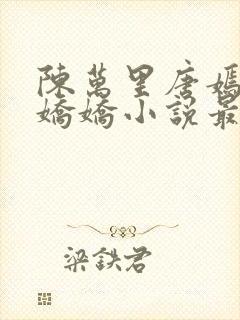 陳萬里唐嫣
嬌嬌小說最
梁鉄君